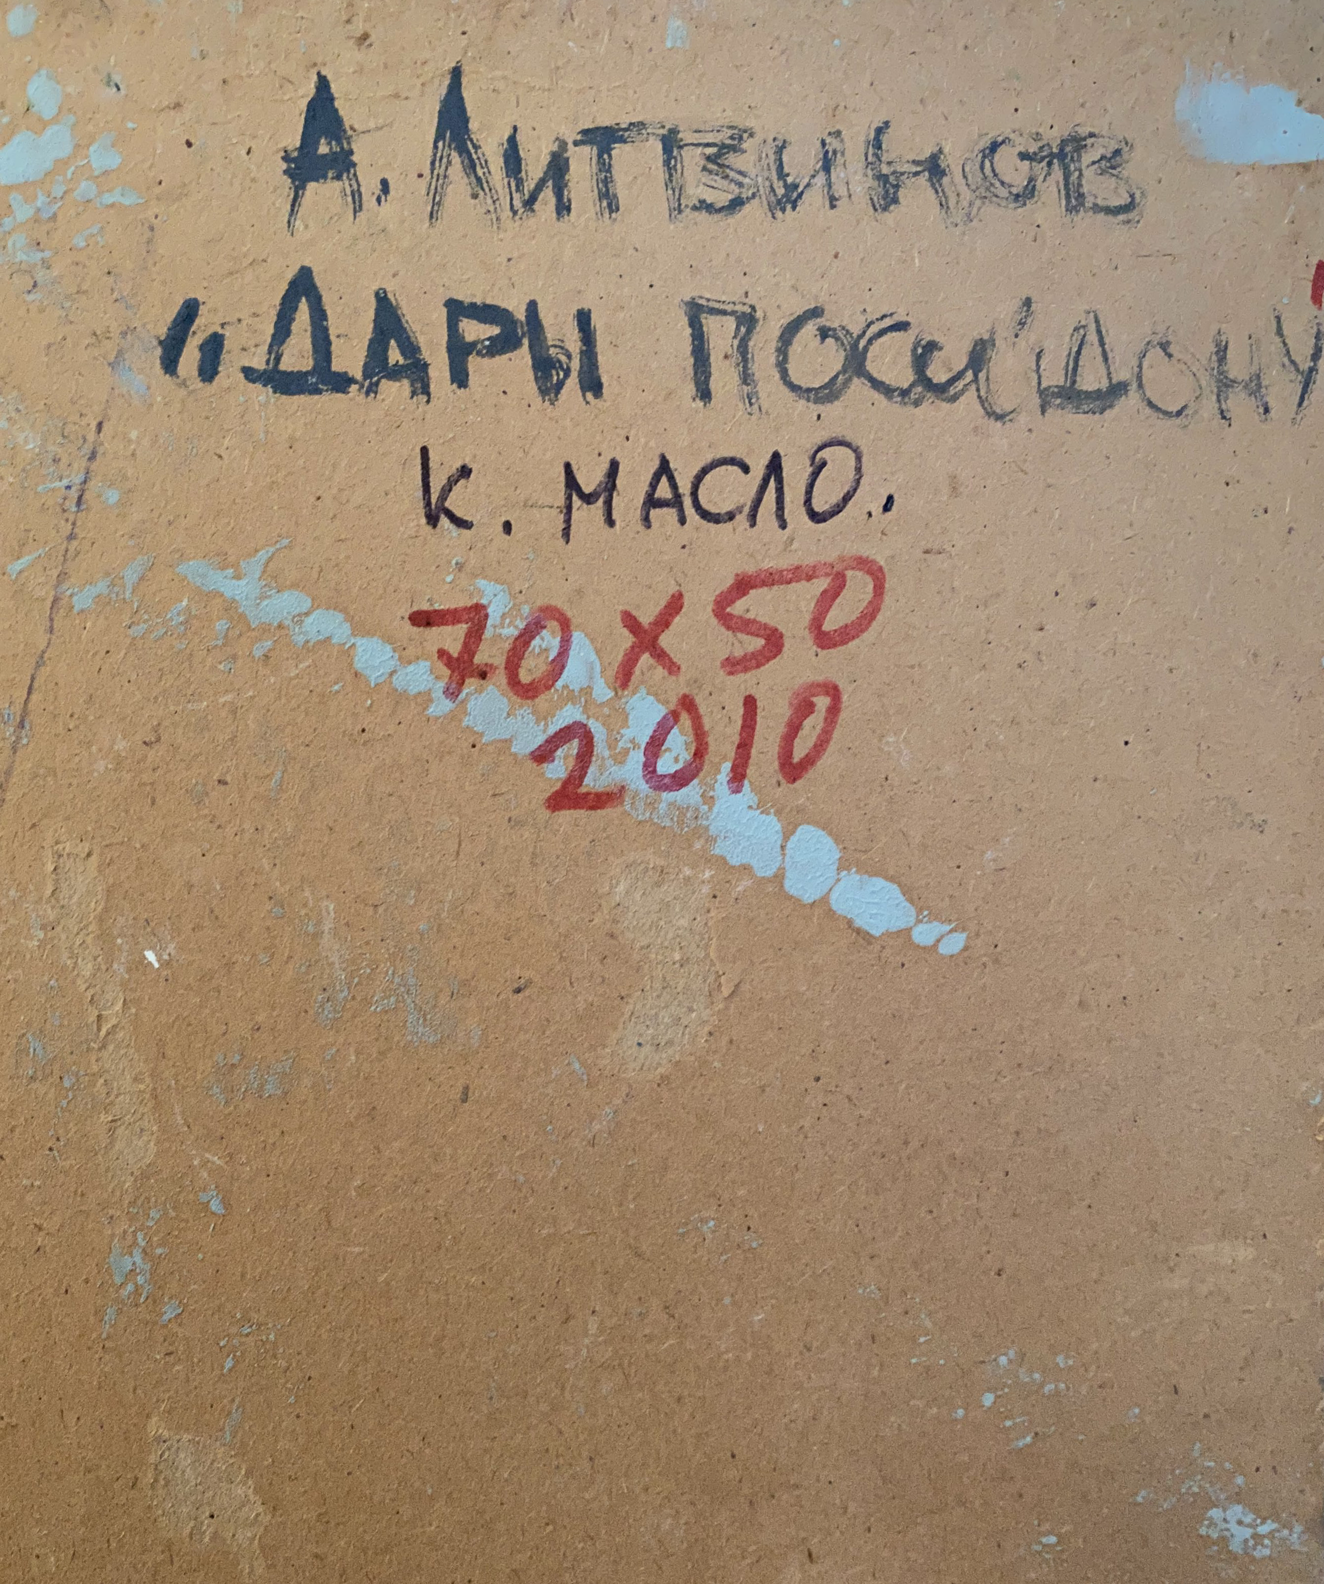 А. Литвинов
"Дары Посейдону
к. масло.
70 х 50
2010